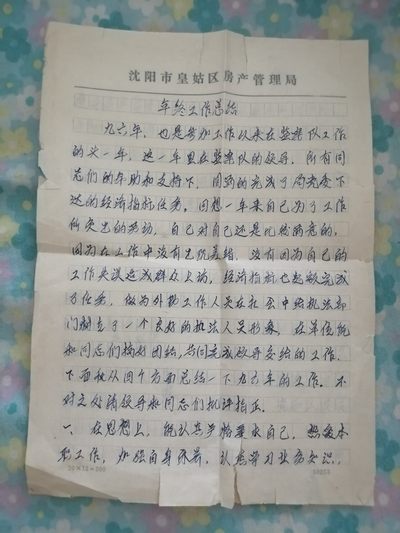 沈阳市皇姑区房产管理局
年终工作总结
九六年,也是参加工作以来在监察队工作
的头一年,这一年里在监察队的领导,所有同
志们的帮助和支持下,圆满的完成了局党委下
达的经济指标任务。回想一年来自己为了工作
所付出的劳动,自己对自己还是比较满意的。
因为在工作中没有出现差错,没有因为自己的
工作失误造成群众上访,经济指标也超额完成
了任务。做为外勤工作人员在社会中给执法部
门树立了一个良好的执法人员形象,在单位能
和同志们搞好团结,共同完成领导交给的工作。
下面我从四个方面总结一下九六年的工作。不
对之处请领导和同志们批评指正。
一、在思想上,能认真严格要求自己,热爱本
职工作,加强自身素养,认真学习业务知识,
20×15=300